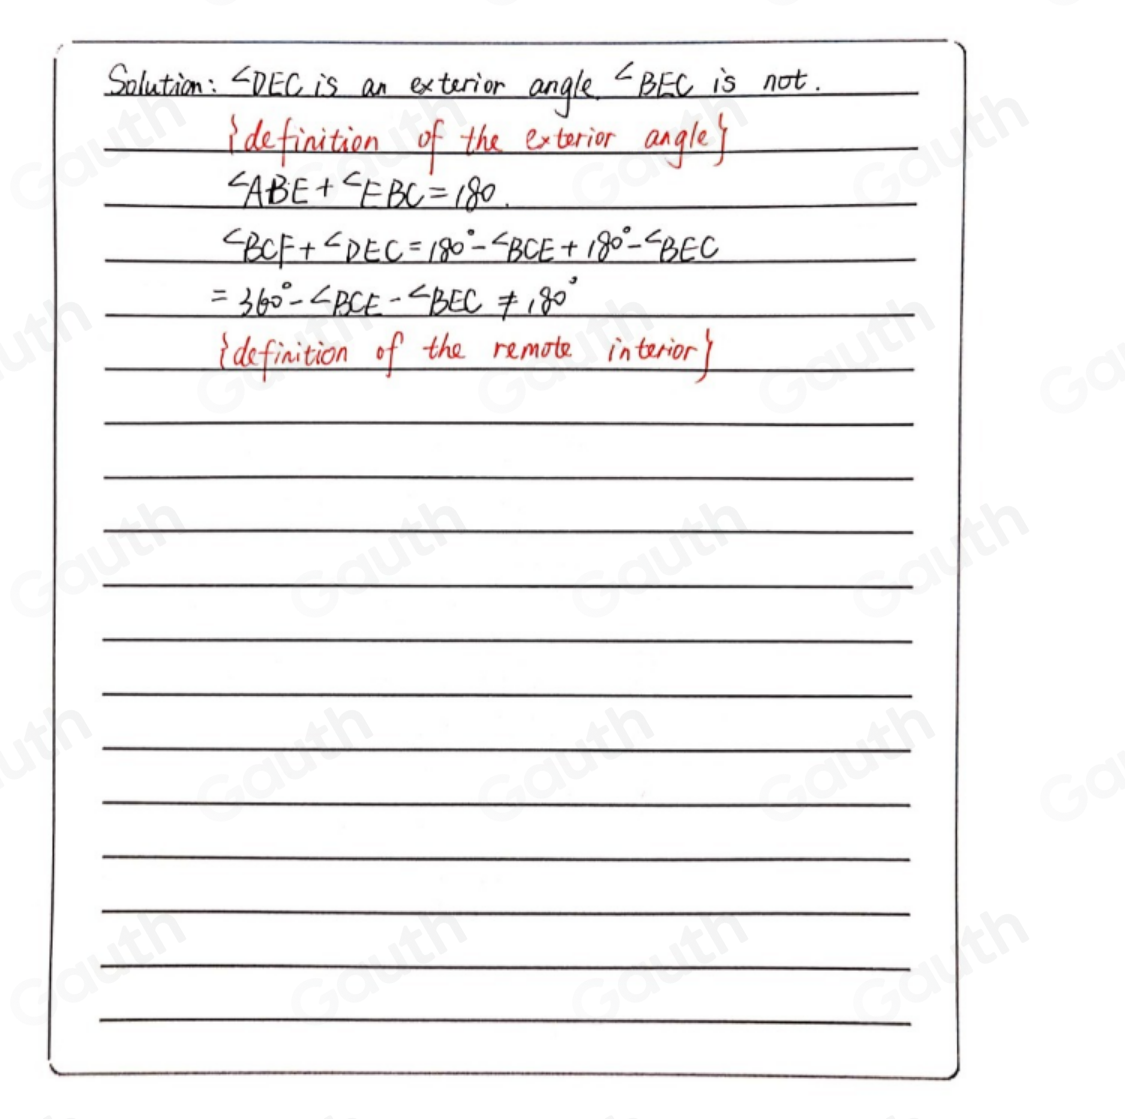 Solution: ∠DEC is an exterior angle. ∠BEC is not.
{definition of the exterior angle}
∠ABE + ∠EBC = 180.
∠BCF + ∠DEC = 180° - ∠BCE + 180° - ∠BEC
= 360° - ∠BCE - ∠BEC ≠ 180°
{definition of the remote interior}